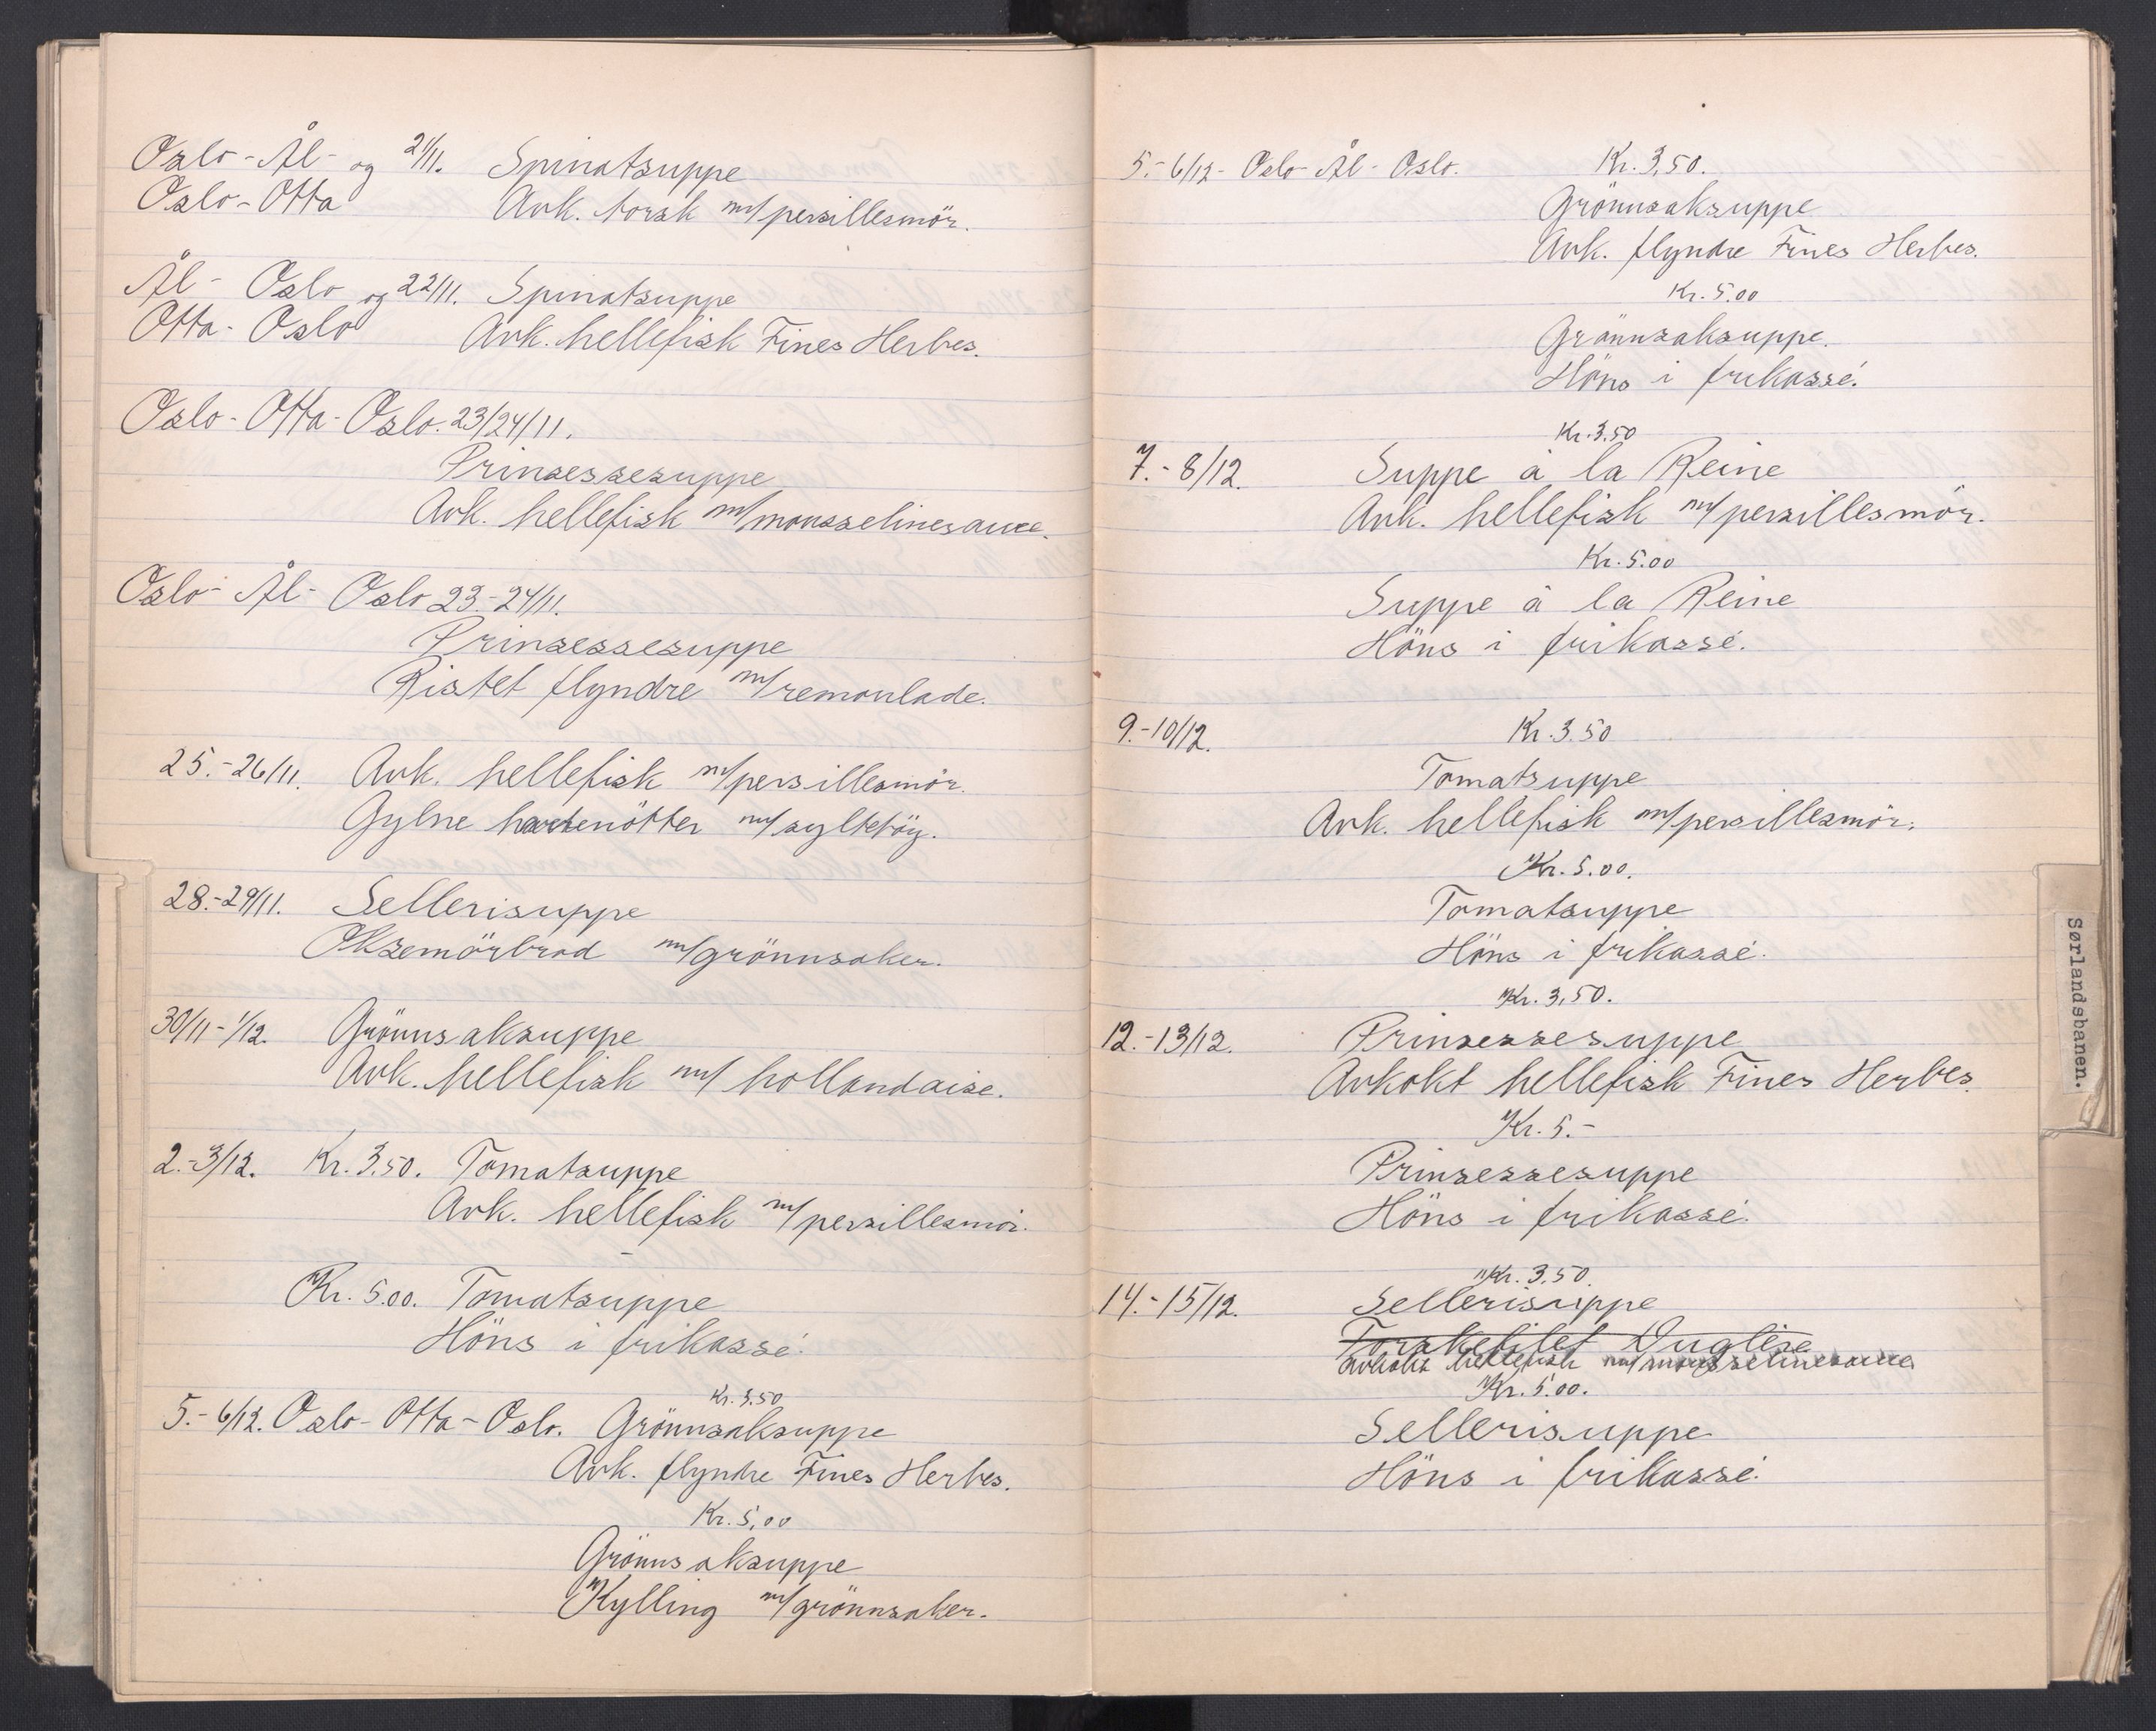 Oslo-Ål- og 21/11. Spinatsuppe
Oslo-Otta Avk. torsk m/persillesmör.
Ål- Oslo og 22/11. Spinatsuppe
Otta- Oslo Avk. hellefisk Fines Herbes.
Oslo-Otta-Oslo. 23/24/11.
Prinsessesuppe
Avk. hellefisk m/mousselinesauce.
Oslo- Ål- Oslo 23.-24/11.
Prinsessesuppe
Ristet flyndre m/remoulade.
25.-26/11. Avk. hellefisk m/persillesmör.
Gylne m/syltetöy.
28.-29/11. Sellerisuppe
Oksemörbrad m/grönnsaker.
30/11-1/12. Grönnsaksuppe
Avk. hellefisk m/ hollandaise.
2.-3/12. Kr. 3.50. Tomatsuppe
Avk. hellefisk m/persillesmör.
Kr. 5.00. Tomatsuppe
Höns i frikassé.
Kr. 3.50
5.-6/12. Oslo-Otta-Oslo. Grönnsaksuppe
Avk. flyndre Fines Herbes.
Kr. 5,00
Grönnsaksuppe
Kylling m/grönnsaker.
5.-6/12- Oslo-Ål-Oslo. Kr. 3,50.
Grönnsaksuppe
Avk. flyndre Fines Herbes.
Kr. 5.00
Grönnsaksuppe.
Höns i frikassé.
Kr. 3.50
7.-8/12. Suppe à la Reine
Avk. hellefisk m/persillesmör.
Kr. 5.00
Suppe à la Reine
Höns i frikassé.
9.-10/12. Kr. 3.50
Tomatsuppe
Avk. hellefisk m/persillesmör.
Kr. 5.00.
Tomatsuppe
Höns i frikassé.
Kr. 3,50.
12.-13/12. Prinsessesuppe
Avkokt hellefisk Fines Herbes.
Kr. 5.-
Prinsessesuppe
Höns i frikassé.
Kr. 3.50.
14.-15/12. Sellerisuppe
Torskefilet Duglère
avkokt hellefisk m/mousselinesauce
Kr. 5.00.
Sellerisuppe
Höns i frikassé.
Sørlandsbanen.